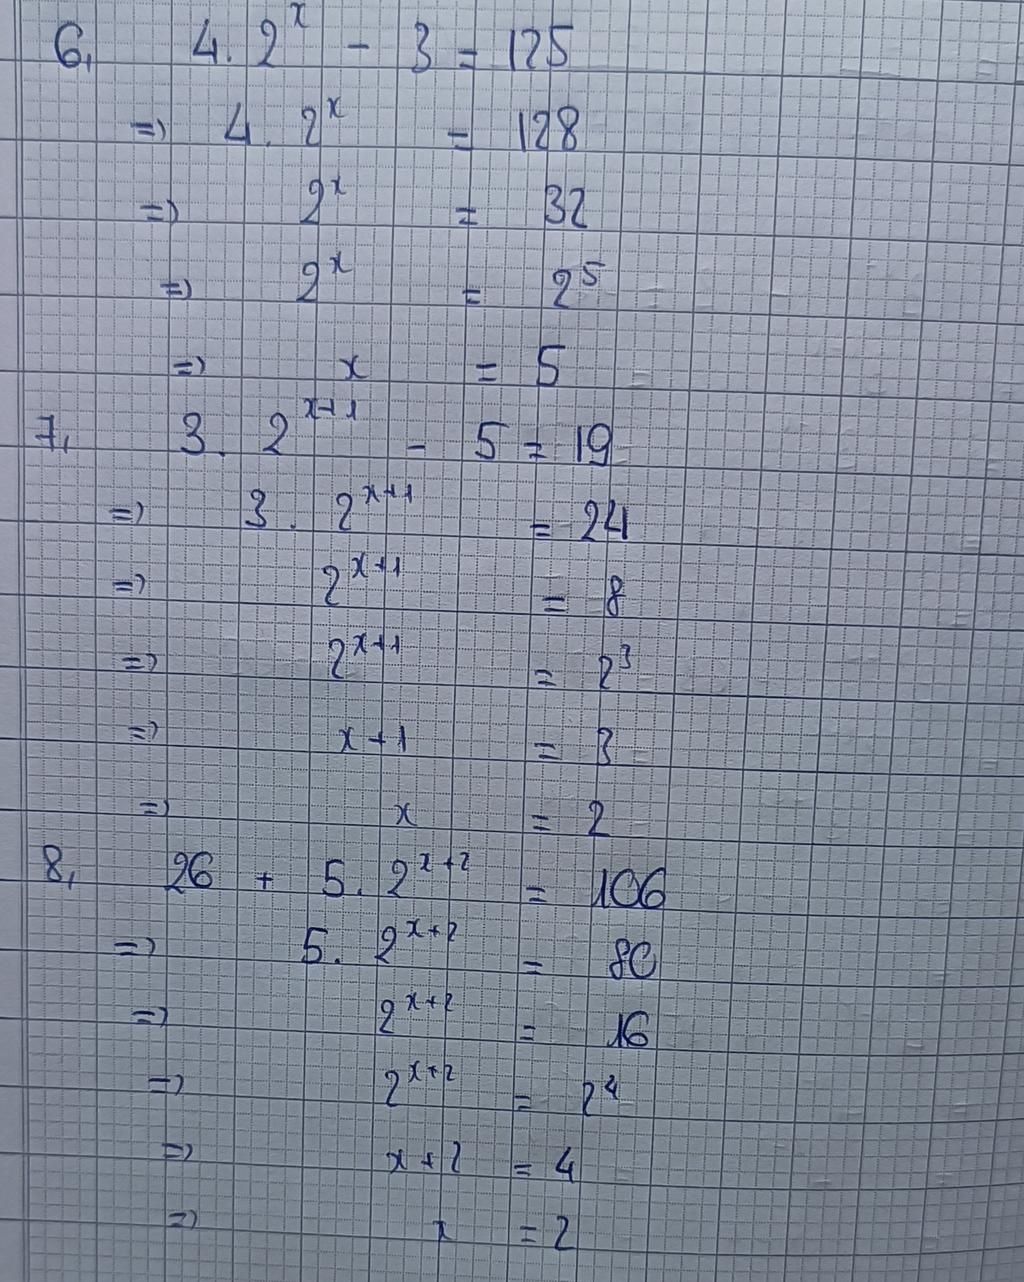 6, 4. 2ˣ - 3 = 125
=> 4. 2ˣ = 128
=> 2ˣ = 32
=> 2ˣ = 2⁵
=> x = 5
7, 3. 2ˣ⁺¹ - 5 = 19
=> 3. 2ˣ⁺¹ = 24
=> 2ˣ⁺¹ = 8
=> 2ˣ⁺¹ = 2³
=> x+1 = 3
=> x = 2
8, 26 + 5. 2ˣ⁺² = 106
=> 5. 2ˣ⁺² = 80
=> 2ˣ⁺² = 16
=> 2ˣ⁺² = 2⁴
=> x+2 = 4
=> x = 2